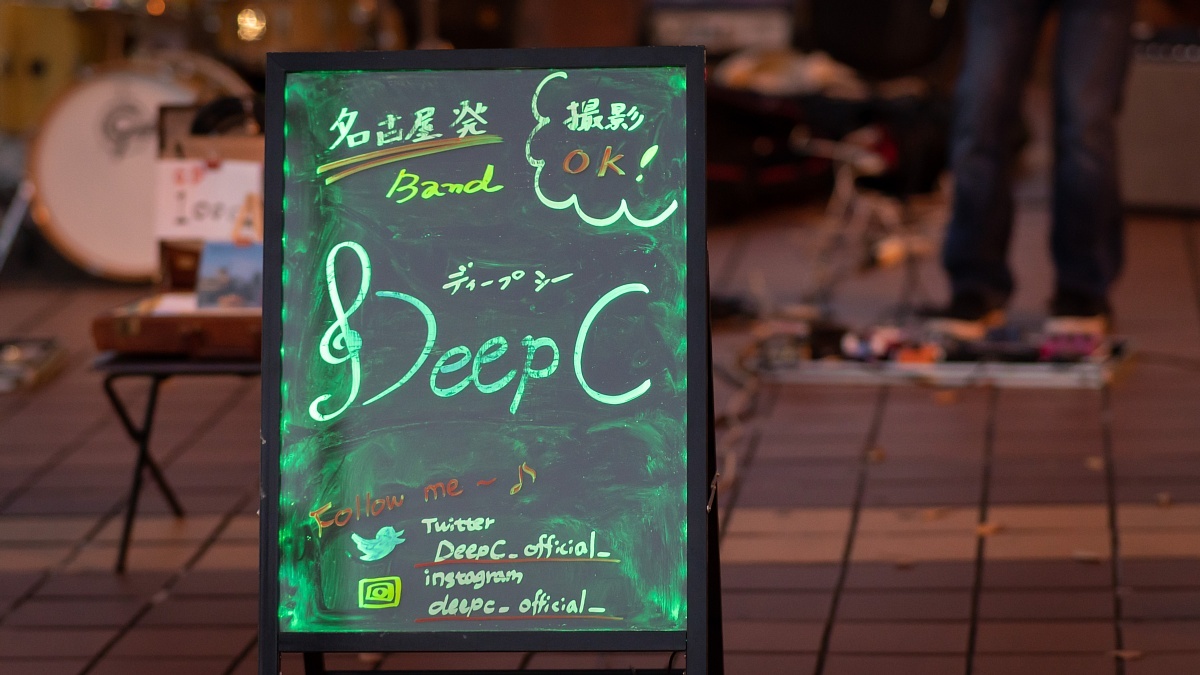 名古屋発
Band
撮影
OK!
ディープシー
DeepC
Follow me ~ ♪
Twitter
DeepC_official_
instagram
deepc_official_